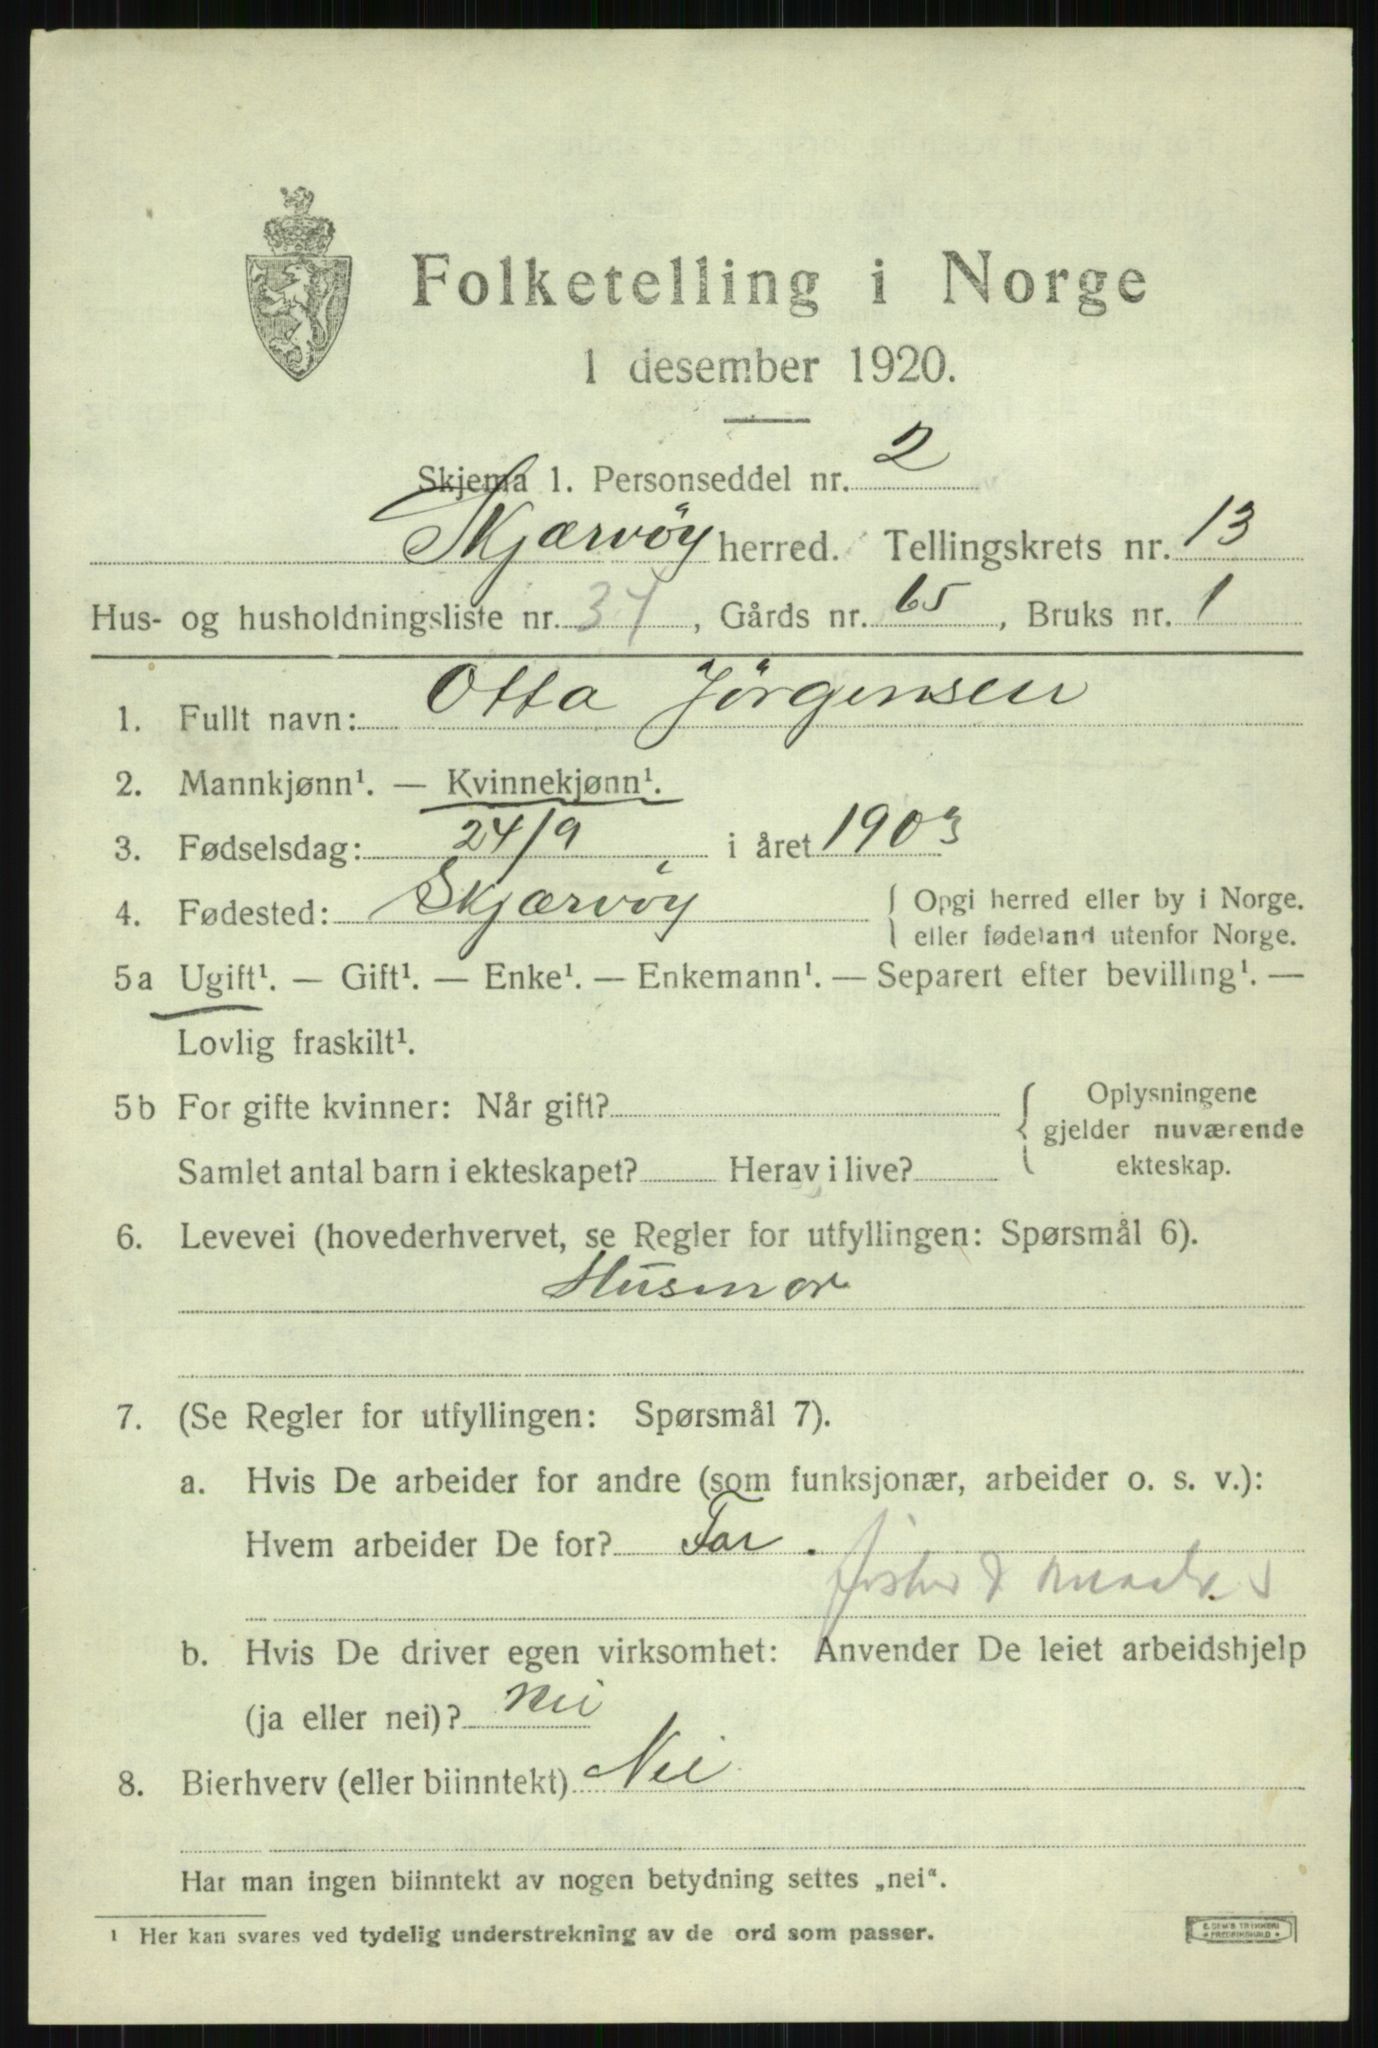 Folketelling i Norge
1 desember 1920.
Skjema 1. Personseddel nr. 2
Skjærvöy herred. Tellingskrets nr. 13
Hus- og husholdningsliste nr. 34, Gårds nr. 65, Bruks nr. 1
1. Fullt navn: Otta Jörgensen
2. Mannkjønn¹. — Kvinnekjønn¹.
3. Fødselsdag: 24/9 i året 1903
4. Fødested: Skjærvöy { Opgi herred eller by i Norge.
eller fødeland utenfor Norge.
5a Ugift¹. — Gift¹. — Enke¹. — Enkemann¹. — Separert efter bevilling¹. —
Lovlig fraskilt¹.
5b For gifte kvinner: Når gift? { Oplysningene
gjelder nuværende
Samlet antal barn i ekteskapet? Herav i live? ekteskap.
6. Levevei (hovederhvervet, se Regler for utfyllingen: Spørsmål 6).
Husmor
7. (Se Regler for utfyllingen: Spørsmål 7).
a. Hvis De arbeider for andre (som funksjonær, arbeider o. s. v.):
Hvem arbeider De for? Far.
b. Hvis De driver egen virksomhet: Anvender De leiet arbeidshjelp
(ja eller nei)? nei
8. Bierhverv (eller biinntekt) Nei
Har man ingen biinntekt av nogen betydning settes „nei“.
¹ Her kan svares ved tydelig understrekning av de ord som passer.
E. SEM'S TRYKKERI
FREDRIKSHALD